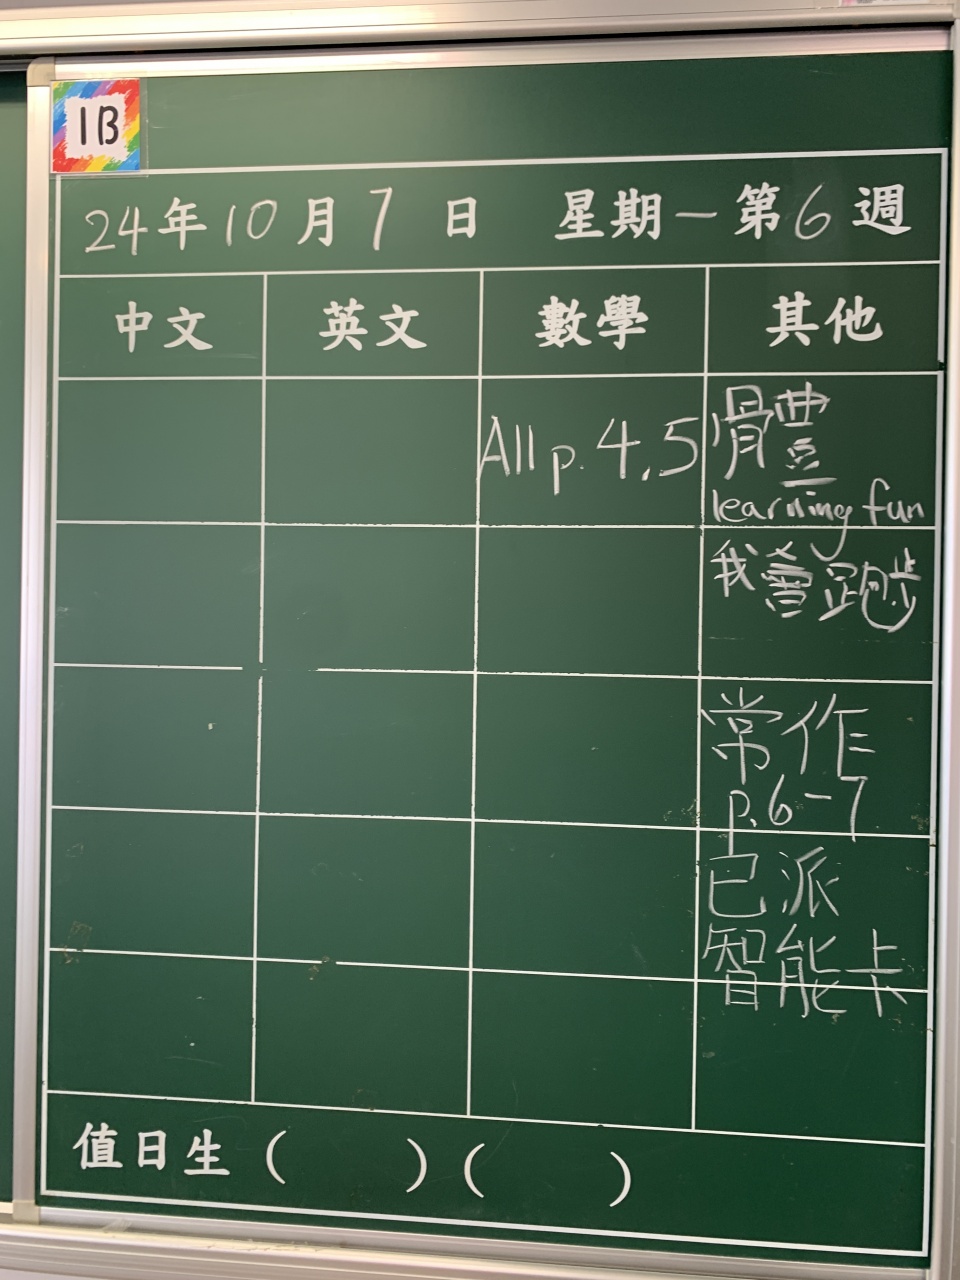 1B
24年10月7日 星期一第6週
中文 英文 數學 其他
All p. 4,5
體
learning fun
我會跑步
常作
p.6-7
已派
智能卡
值日生 ( ) ( )